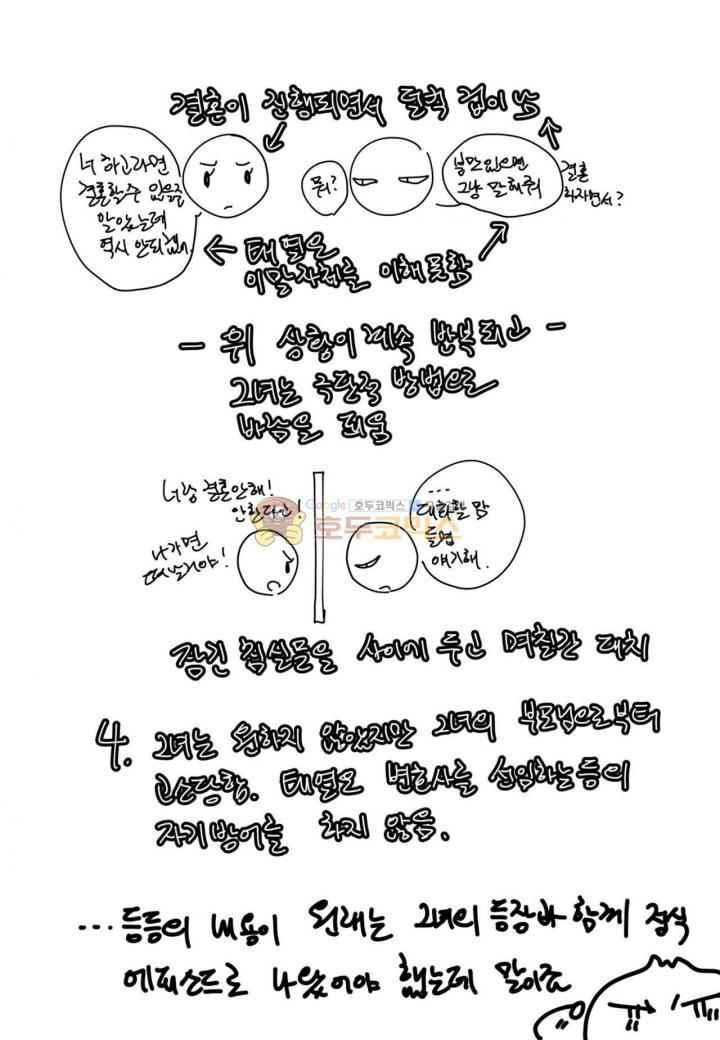 결혼이 진행되면서 덜컥 겁이 남
너 하고라면
결혼할수 있을줄
알았는데
역시 안되겠어.
뭐?
불만있으면
그냥 말해줘
결혼
하자면서?
태열은
이말자체를 이해 못함
- 위 상황이 계속 반복되고 -
그녀는 극단적 방법으로
바람을 피움
너랑 결혼안해!
안한다고!
나가면
죽을거야!
Google 호두코믹스
호두코믹스
....
대화할 맘
들면
얘기해.
잠긴 침실문을 사이에 두고 며칠간 대치
4. 그녀는 원하지 않았지만 그녀의 부모님으로부터
고소당함. 태열도 변호사를 선임하는등의
자기방어를 하지 않음.
...등등의 내용이 원래는 그녀의 등장과 함께 정식
에피소드로 나왔어야 했는데 말이죠